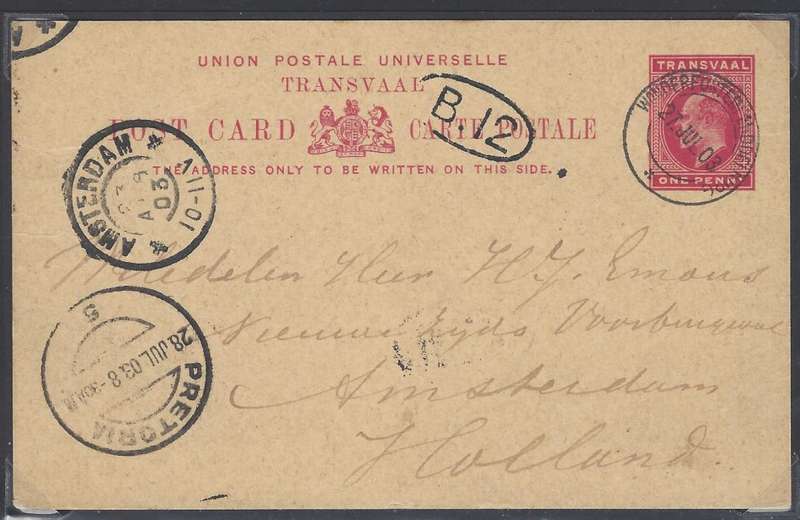 UNION POSTALE UNIVERSELLE
TRANSVAAL
POST CARD CARTE POSTALE
THE ADDRESS ONLY TO BE WRITTEN ON THIS SIDE.
B.12
TRANSVAAL
ONE PENNY
27 JUL 03
AMSTERDAM
10-11V
23 AUG 03
PRETORIA
28 JUL. 03. 8-30AM
5
Weledelen Heer H. J. Emous
Nieuwe Zijds Voorburgwal
Amsterdam
Holland